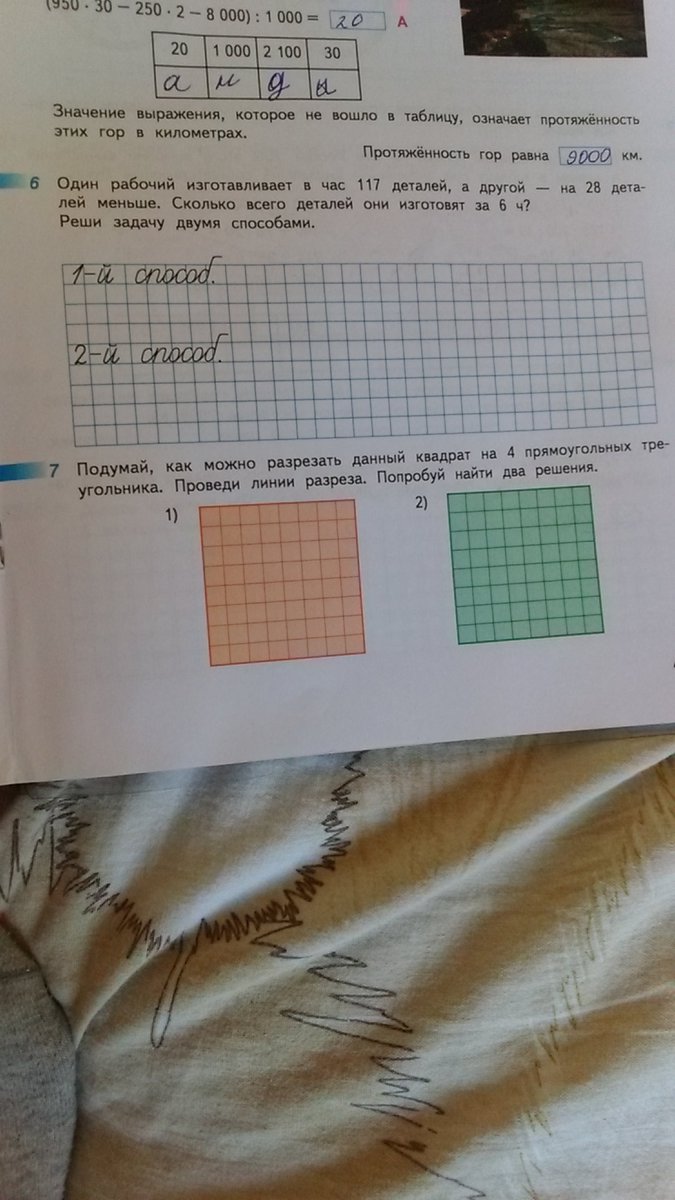 (950 · 30 − 250 · 2 − 8 000) : 1 000 = 20 А
20 1 000 2 100 30
а н д ы
Значение выражения, которое не вошло в таблицу, означает протяжённость
этих гор в километрах.
Протяжённость гор равна 9000 км.
6 Один рабочий изготавливает в час 117 деталей, а другой — на 28 дета-
лей меньше. Сколько всего деталей они изготовят за 6 ч?
Реши задачу двумя способами.
1-й способ.
2-й способ.
7 Подумай, как можно разрезать данный квадрат на 4 прямоугольных тре-
угольника. Проведи линии разреза. Попробуй найти два решения.
1) 2)